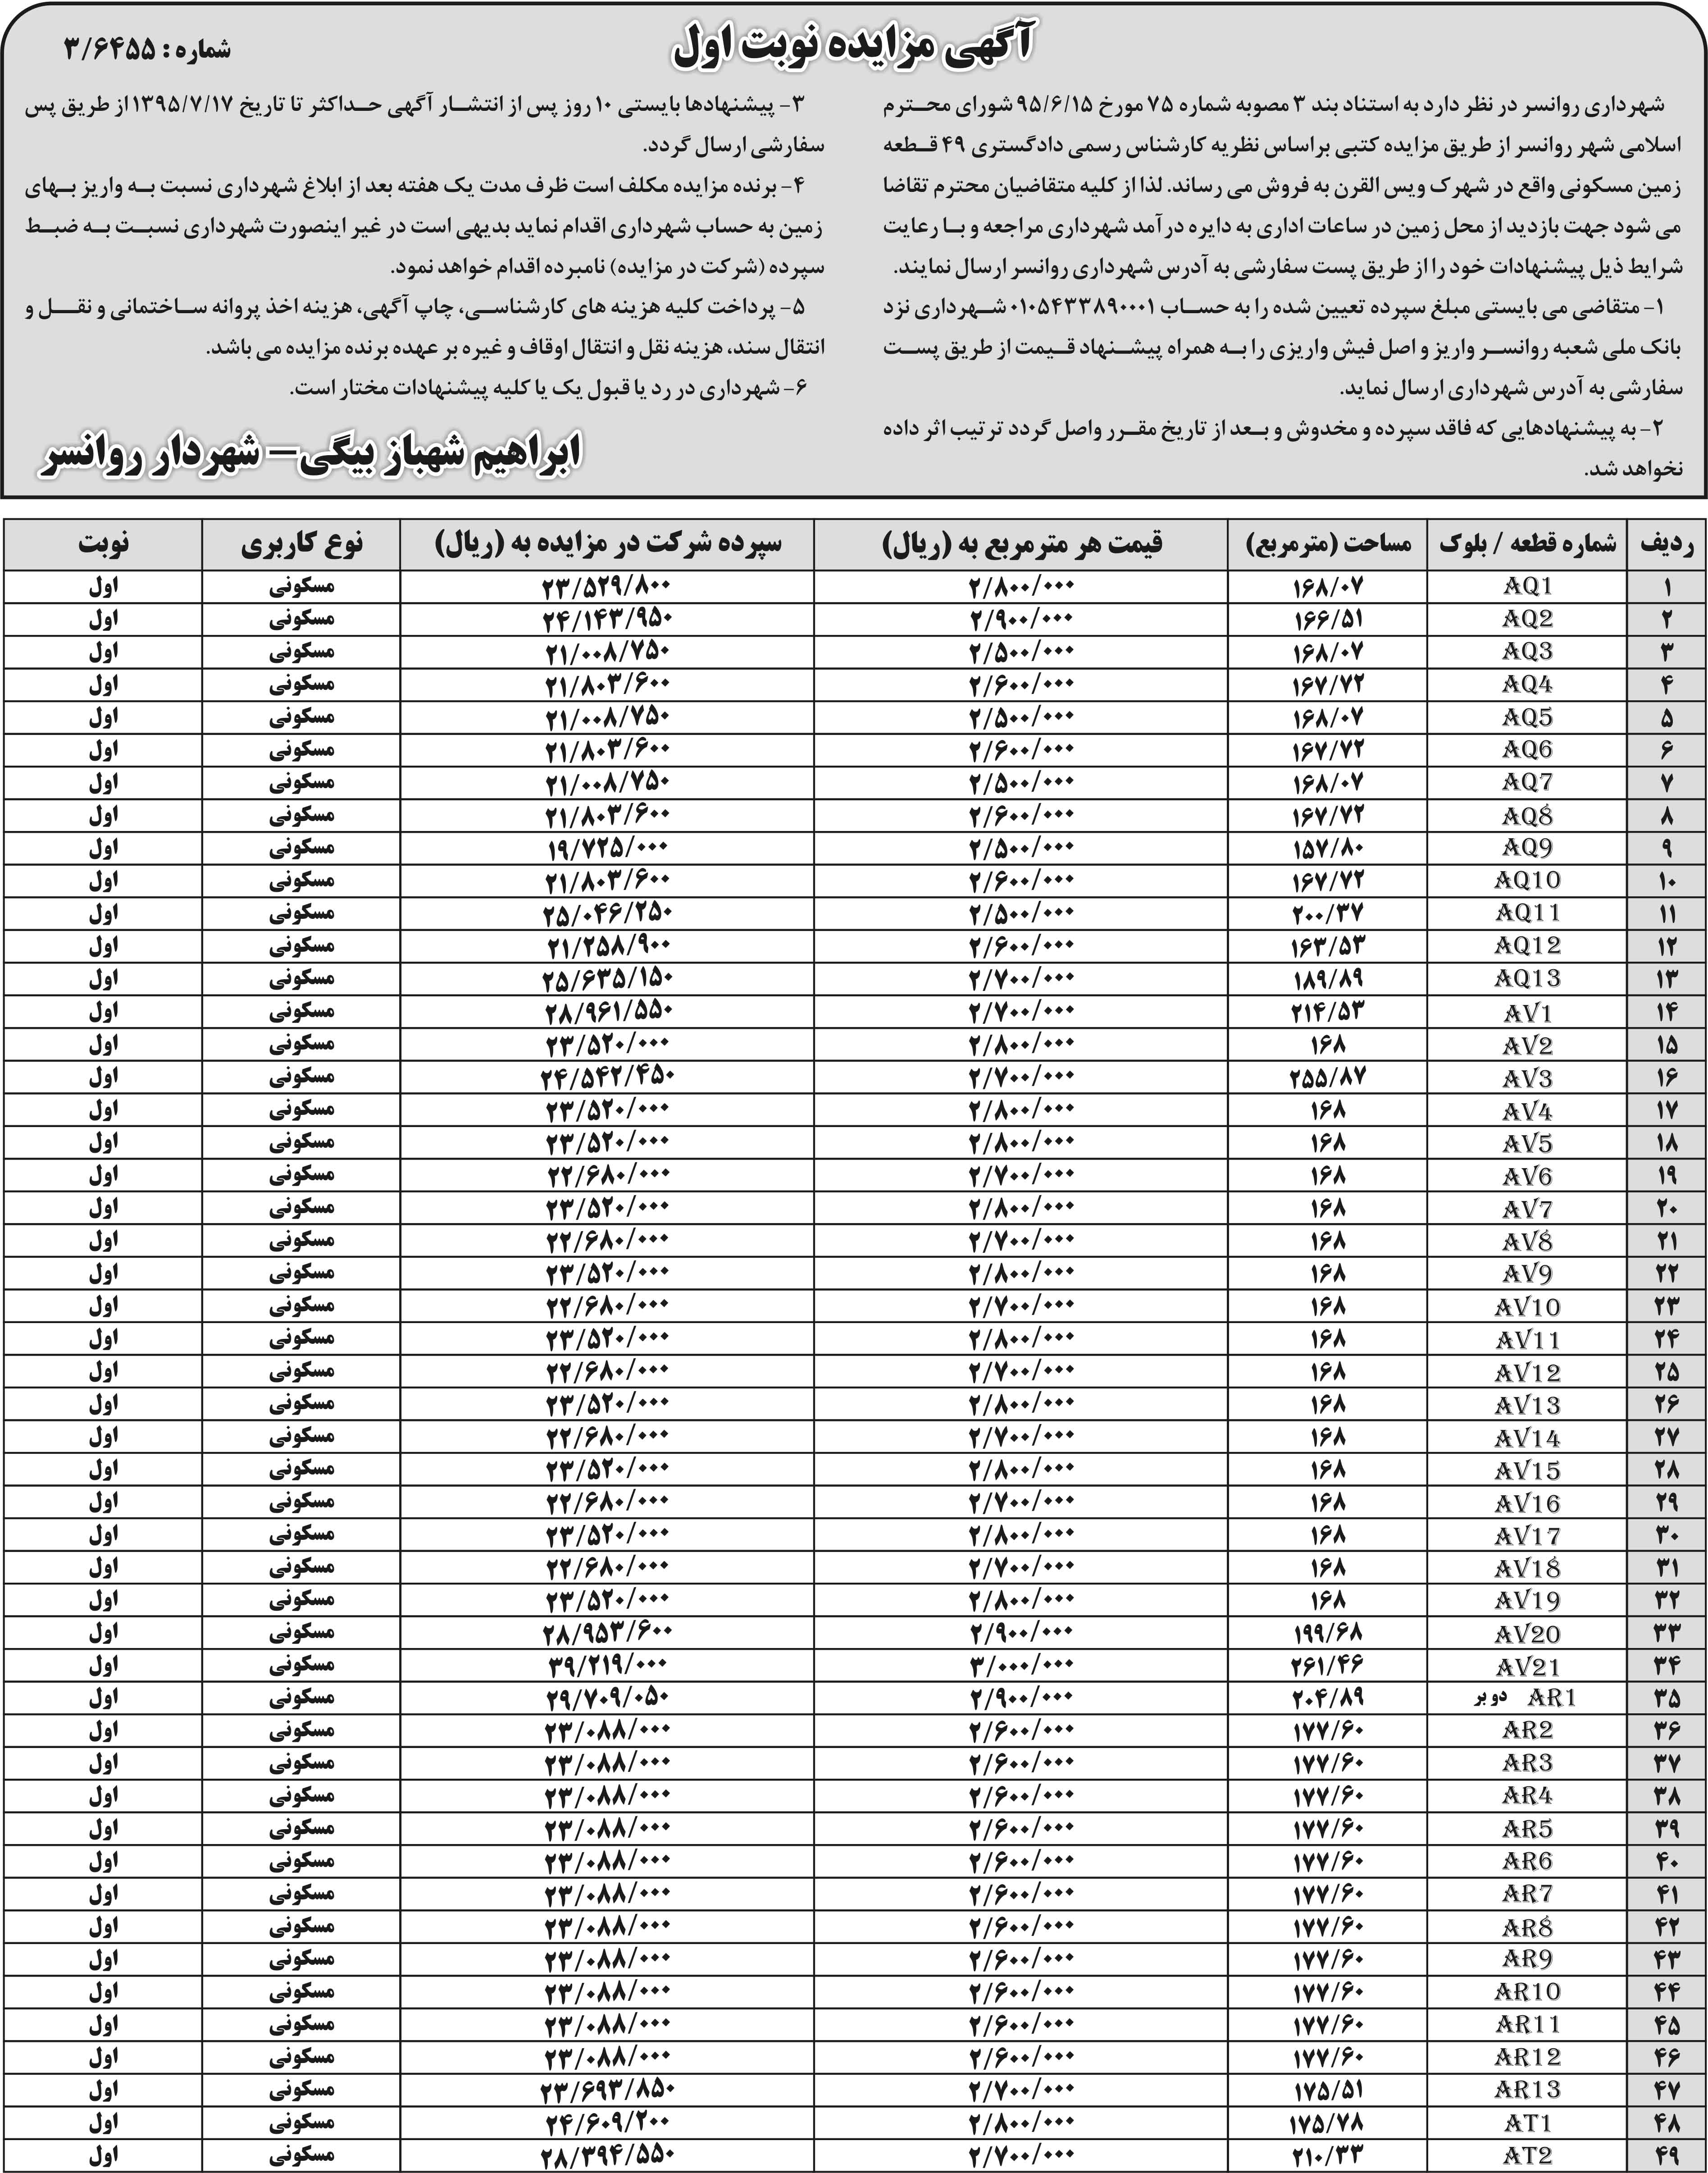 آگهی مزایده نوبت اول
شماره : ۳/۶۴۵۵
شهرداری روانسر در نظر دارد به استناد بند ۳ مصوبه شماره ۷۵ مورخ ۹۵/۶/۱۵ شورای محترم
اسلامی شهر روانسر از طریق مزایده کتبی براساس نظریه کارشناس رسمی دادگستری ۴۹ قطعه
زمین مسکونی واقع در شهرک ویس القرن به فروش می رساند. لذا از کلیه متقاضیان محترم تقاضا
می شود جهت بازدید از محل زمین در ساعات اداری به دایره درآمد شهرداری مراجعه و با رعایت
شرایط ذیل پیشنهادات خود را از طریق پست سفارشی به آدرس شهرداری روانسر ارسال نمایند.
۱- متقاضی می بایستی مبلغ سپرده تعیین شده را به حساب ۰۱۰۵۴۳۳۸۹۰۰۰۱ شهرداری نزد
بانک ملی شعبه روانسر واریز و اصل فیش واریزی را به همراه پیشنهاد قیمت از طریق پست
سفارشی به آدرس شهرداری ارسال نماید.
۲- به پیشنهادهایی که فاقد سپرده و مخدوش و بعد از تاریخ مقرر واصل گردد ترتیب اثر داده
نخواهد شد.
۳- پیشنهادها بایستی ۱۰ روز پس از انتشار آگهی حداکثر تا تاریخ ۱۳۹۵/۷/۱۷ از طریق پس
سفارشی ارسال گردد.
۴- برنده مزایده مکلف است ظرف مدت یک هفته بعد از ابلاغ شهرداری نسبت به واریز بهای
زمین به حساب شهرداری اقدام نماید بدیهی است در غیر اینصورت شهرداری نسبت به ضبط
سپرده (شرکت در مزایده) نامبرده اقدام خواهد نمود.
۵- پرداخت کلیه هزینه های کارشناسی، چاپ آگهی، هزینه اخذ پروانه ساختمانی و نقل و
انتقال سند، هزینه نقل و انتقال اوقاف و غیره بر عهده برنده مزایده می باشد.
۶- شهرداری در رد یا قبول یک یا کلیه پیشنهادات مختار است.
ابراهیم شهباز بیگی – شهردار روانسر
ردیف شماره قطعه / بلوک مساحت (مترمربع) قیمت هر مترمربع به (ریال) سپرده شرکت در مزایده به (ریال) نوع کاربری نوبت
۱ AQ1 ۱۶۸/۰۷ ۲/۸۰۰/۰۰۰ ۲۳/۵۲۹/۸۰۰ مسکونی اول
۲ AQ2 ۱۶۶/۵۱ ۲/۹۰۰/۰۰۰ ۲۴/۱۴۳/۹۵۰ مسکونی اول
۳ AQ3 ۱۶۸/۰۷ ۲/۵۰۰/۰۰۰ ۲۱/۰۰۸/۷۵۰ مسکونی اول
۴ AQ4 ۱۶۷/۷۲ ۲/۶۰۰/۰۰۰ ۲۱/۸۰۳/۶۰۰ مسکونی اول
۵ AQ5 ۱۶۸/۰۷ ۲/۵۰۰/۰۰۰ ۲۱/۰۰۸/۷۵۰ مسکونی اول
۶ AQ6 ۱۶۷/۷۲ ۲/۶۰۰/۰۰۰ ۲۱/۸۰۳/۶۰۰ مسکونی اول
۷ AQ7 ۱۶۸/۰۷ ۲/۵۰۰/۰۰۰ ۲۱/۰۰۸/۷۵۰ مسکونی اول
۸ AQ8 ۱۶۷/۷۲ ۲/۶۰۰/۰۰۰ ۲۱/۸۰۳/۶۰۰ مسکونی اول
۹ AQ9 ۱۵۷/۸۰ ۲/۵۰۰/۰۰۰ ۱۹/۷۲۵/۰۰۰ مسکونی اول
۱۰ AQ10 ۱۶۷/۷۲ ۲/۶۰۰/۰۰۰ ۲۱/۸۰۳/۶۰۰ مسکونی اول
۱۱ AQ11 ۲۰۰/۳۷ ۲/۵۰۰/۰۰۰ ۲۵/۰۴۶/۲۵۰ مسکونی اول
۱۲ AQ12 ۱۶۳/۵۳ ۲/۶۰۰/۰۰۰ ۲۱/۲۵۸/۹۰۰ مسکونی اول
۱۳ AQ13 ۱۸۹/۸۹ ۲/۷۰۰/۰۰۰ ۲۵/۶۳۵/۱۵۰ مسکونی اول
۱۴ AV1 ۲۱۴/۵۳ ۲/۷۰۰/۰۰۰ ۲۸/۹۶۱/۵۵۰ مسکونی اول
۱۵ AV2 ۱۶۸ ۲/۸۰۰/۰۰۰ ۲۳/۵۲۰/۰۰۰ مسکونی اول
۱۶ AV3 ۲۵۵/۸۷ ۲/۷۰۰/۰۰۰ ۲۴/۵۴۲/۴۵۰ مسکونی اول
۱۷ AV4 ۱۶۸ ۲/۸۰۰/۰۰۰ ۲۳/۵۲۰/۰۰۰ مسکونی اول
۱۸ AV5 ۱۶۸ ۲/۸۰۰/۰۰۰ ۲۳/۵۲۰/۰۰۰ مسکونی اول
۱۹ AV6 ۱۶۸ ۲/۷۰۰/۰۰۰ ۲۲/۶۸۰/۰۰۰ مسکونی اول
۲۰ AV7 ۱۶۸ ۲/۸۰۰/۰۰۰ ۲۳/۵۲۰/۰۰۰ مسکونی اول
۲۱ AV8 ۱۶۸ ۲/۷۰۰/۰۰۰ ۲۲/۶۸۰/۰۰۰ مسکونی اول
۲۲ AV9 ۱۶۸ ۲/۸۰۰/۰۰۰ ۲۳/۵۲۰/۰۰۰ مسکونی اول
۲۳ AV10 ۱۶۸ ۲/۷۰۰/۰۰۰ ۲۲/۶۸۰/۰۰۰ مسکونی اول
۲۴ AV11 ۱۶۸ ۲/۸۰۰/۰۰۰ ۲۳/۵۲۰/۰۰۰ مسکونی اول
۲۵ AV12 ۱۶۸ ۲/۷۰۰/۰۰۰ ۲۲/۶۸۰/۰۰۰ مسکونی اول
۲۶ AV13 ۱۶۸ ۲/۸۰۰/۰۰۰ ۲۳/۵۲۰/۰۰۰ مسکونی اول
۲۷ AV14 ۱۶۸ ۲/۷۰۰/۰۰۰ ۲۲/۶۸۰/۰۰۰ مسکونی اول
۲۸ AV15 ۱۶۸ ۲/۸۰۰/۰۰۰ ۲۳/۵۲۰/۰۰۰ مسکونی اول
۲۹ AV16 ۱۶۸ ۲/۷۰۰/۰۰۰ ۲۲/۶۸۰/۰۰۰ مسکونی اول
۳۰ AV17 ۱۶۸ ۲/۸۰۰/۰۰۰ ۲۳/۵۲۰/۰۰۰ مسکونی اول
۳۱ AV18 ۱۶۸ ۲/۷۰۰/۰۰۰ ۲۲/۶۸۰/۰۰۰ مسکونی اول
۳۲ AV19 ۱۶۸ ۲/۸۰۰/۰۰۰ ۲۳/۵۲۰/۰۰۰ مسکونی اول
۳۳ AV20 ۱۹۹/۶۸ ۲/۹۰۰/۰۰۰ ۲۸/۹۵۳/۶۰۰ مسکونی اول
۳۴ AV21 ۲۶۱/۴۶ ۳/۰۰۰/۰۰۰ ۳۹/۲۱۹/۰۰۰ مسکونی اول
۳۵ AR1 دو بر ۲۰۴/۸۹ ۲/۹۰۰/۰۰۰ ۲۹/۷۰۹/۰۵۰ مسکونی اول
۳۶ AR2 ۱۷۷/۶۰ ۲/۶۰۰/۰۰۰ ۲۳/۰۸۸/۰۰۰ مسکونی اول
۳۷ AR3 ۱۷۷/۶۰ ۲/۶۰۰/۰۰۰ ۲۳/۰۸۸/۰۰۰ مسکونی اول
۳۸ AR4 ۱۷۷/۶۰ ۲/۶۰۰/۰۰۰ ۲۳/۰۸۸/۰۰۰ مسکونی اول
۳۹ AR5 ۱۷۷/۶۰ ۲/۶۰۰/۰۰۰ ۲۳/۰۸۸/۰۰۰ مسکونی اول
۴۰ AR6 ۱۷۷/۶۰ ۲/۶۰۰/۰۰۰ ۲۳/۰۸۸/۰۰۰ مسکونی اول
۴۱ AR7 ۱۷۷/۶۰ ۲/۶۰۰/۰۰۰ ۲۳/۰۸۸/۰۰۰ مسکونی اول
۴۲ AR8 ۱۷۷/۶۰ ۲/۶۰۰/۰۰۰ ۲۳/۰۸۸/۰۰۰ مسکونی اول
۴۳ AR9 ۱۷۷/۶۰ ۲/۶۰۰/۰۰۰ ۲۳/۰۸۸/۰۰۰ مسکونی اول
۴۴ AR10 ۱۷۷/۶۰ ۲/۶۰۰/۰۰۰ ۲۳/۰۸۸/۰۰۰ مسکونی اول
۴۵ AR11 ۱۷۷/۶۰ ۲/۶۰۰/۰۰۰ ۲۳/۰۸۸/۰۰۰ مسکونی اول
۴۶ AR12 ۱۷۷/۶۰ ۲/۶۰۰/۰۰۰ ۲۳/۰۸۸/۰۰۰ مسکونی اول
۴۷ AR13 ۱۷۵/۵۱ ۲/۷۰۰/۰۰۰ ۲۳/۶۹۳/۸۵۰ مسکونی اول
۴۸ AT1 ۱۷۵/۷۸ ۲/۸۰۰/۰۰۰ ۲۴/۶۰۹/۲۰۰ مسکونی اول
۴۹ AT2 ۲۱۰/۳۳ ۲/۷۰۰/۰۰۰ ۲۸/۳۹۴/۵۵۰ مسکونی اول